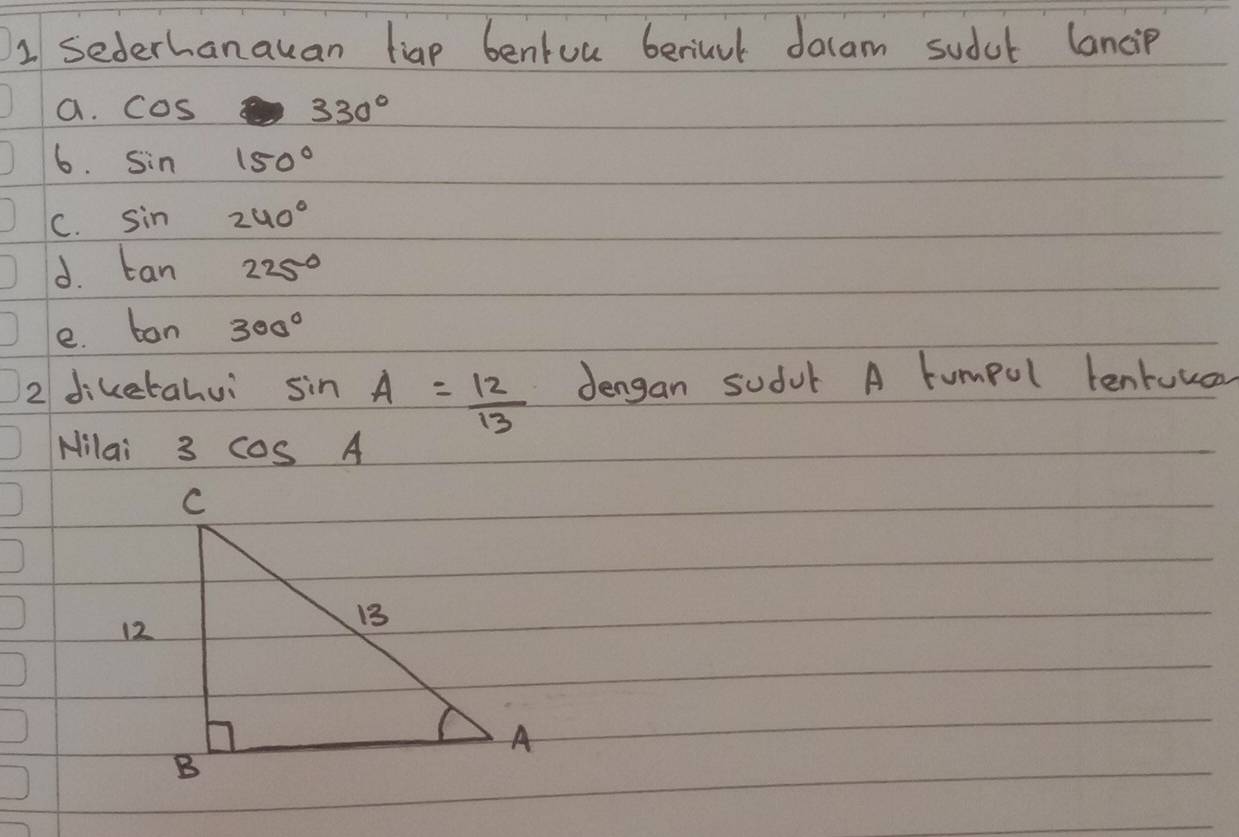 1 Sederhanakan tiap bentuk berikut dalam sudut lancip
a. cos 330°
b. sin 150°
c. sin 240°
d. tan 225°
e. tan 300°
2 diketahui sin A = 12/13 dengan sudut A tumpul tentukan
Nilai 3 cos A
C
12 13
B A